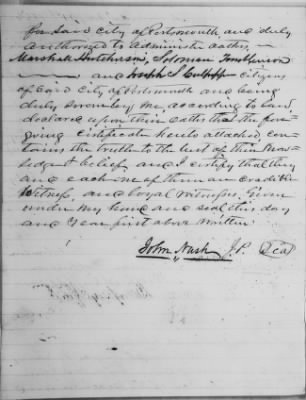 for said City of Portsmouth, and duly
authorized to administer oaths,
Marshall Hutchinson, Solomon Tomlinson
and Joseph S Culpepper citizens
of said City of Portsmouth and being
duly sworn by me, according to law,
declared upon their oaths that the fore-
going certificate hereto attached, con-
tains the truth to the best of their know-
ledge & belief, and I certify that they
are each one of them are credible
Witness and loyal witnesses. Given
under my hand and seal this day
and year first above written
John Nash J.P. Seal